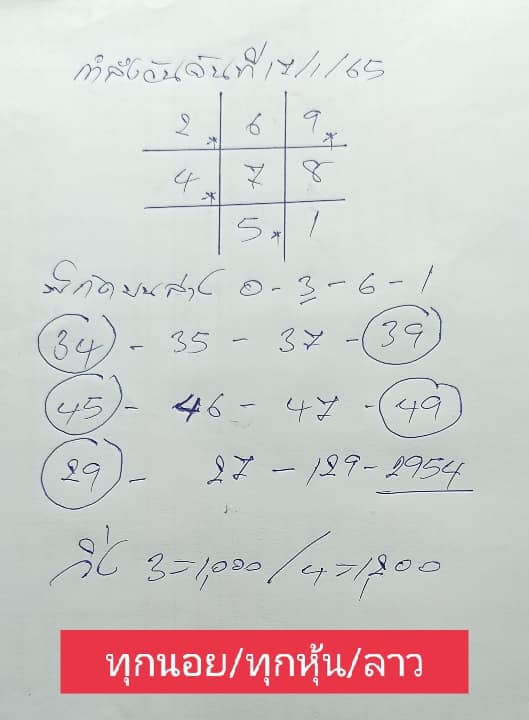 กำลังวันจันที่ 17/1/65
2* 6 9*
4* 7 8
5* 1
พิกัดบนล่าง 0-3-6-1
34 - 35 - 37 - 39
45 - 46 - 47 - 49
29 - 27 - 129 - 2954
3=1,000/4=1,200
ทุกนอย/ทุกหุ้น/ลาว